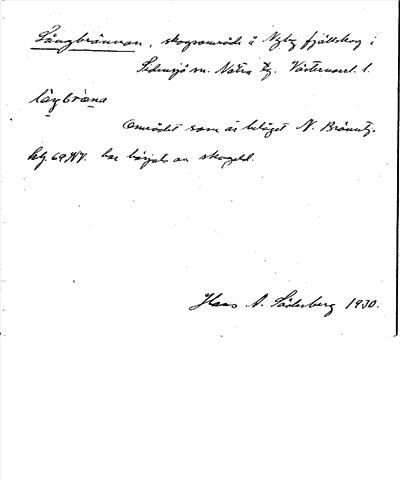 Långbrännan, skogsområde å Nyby fjällskog i
Sidensjö sn. Nätra tg. Västernorrl. l.
låŋbrèna
Området som är beläget N. Bränntj.
har härjats av skogseld.
Hans A. Söderberg 1930.